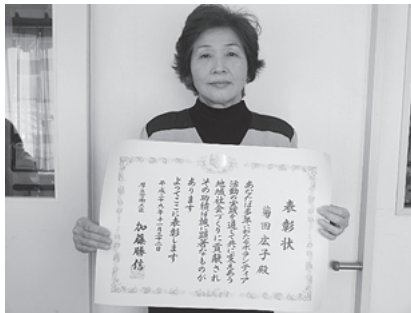 表彰状
菊田宏子殿
あなたは多年にわたりボランティア
活動の実践を通して共に支えあう
地域社会づくりに貢献され
その功績は誠に顕著なものが
あります
よってここに表彰します
平成二十九年十一月二十二日
厚生労働大臣 加藤勝信